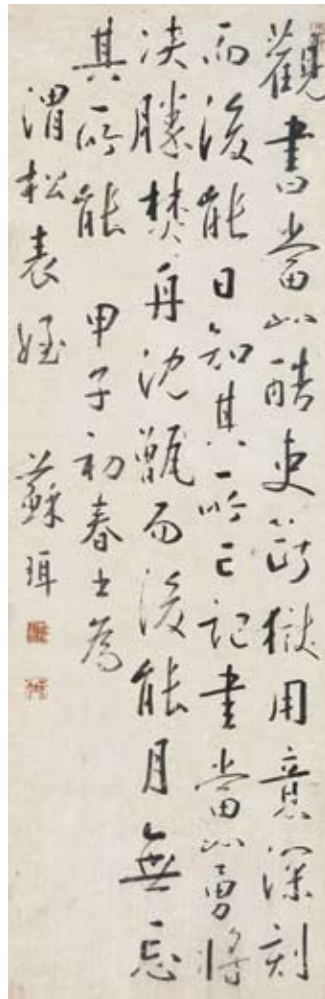 觀書當如酷吏斷獄用意深刻
而後能日知其所亡記書當如勇將
決勝焚舟沈甑而後能月無忘
其所能 甲子初春書為
渭松表姪 蘇珥